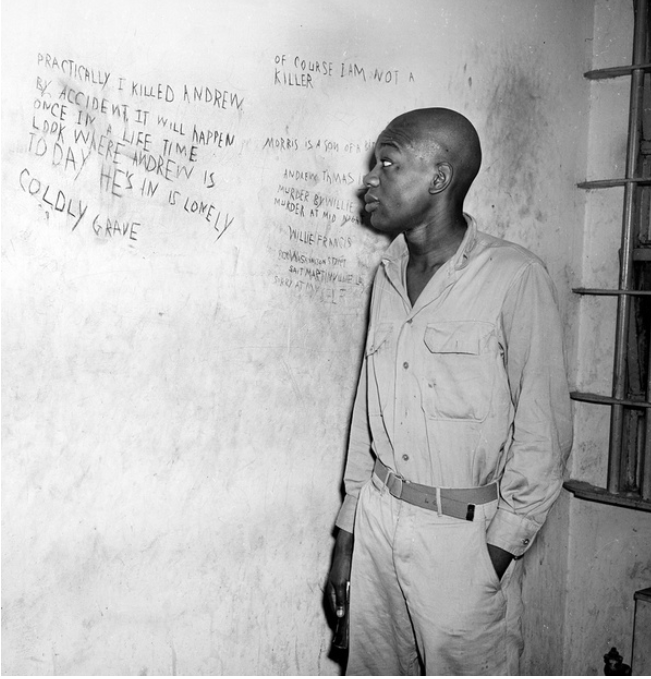 PRACTICALLY I KILLED ANDREW
BY ACCIDENT IT WILL HAPPEN
ONCE IN A LIFE TIME
LOOK WHERE ANDREW IS
TODAY HE'S IN IS LONELY
COLDLY GRAVE
OF COURSE I AM NOT A
KILLER
MORRIS IS A SON OF A
ANDREW THMAS
MURDER BY WILLIE
MURDER AT MID
WILLIE FRANCIS